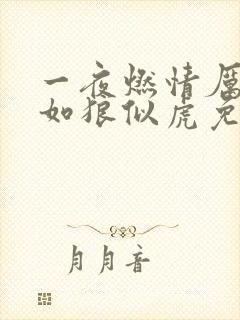 一夜燃情厉
如狼似虎免
月月音